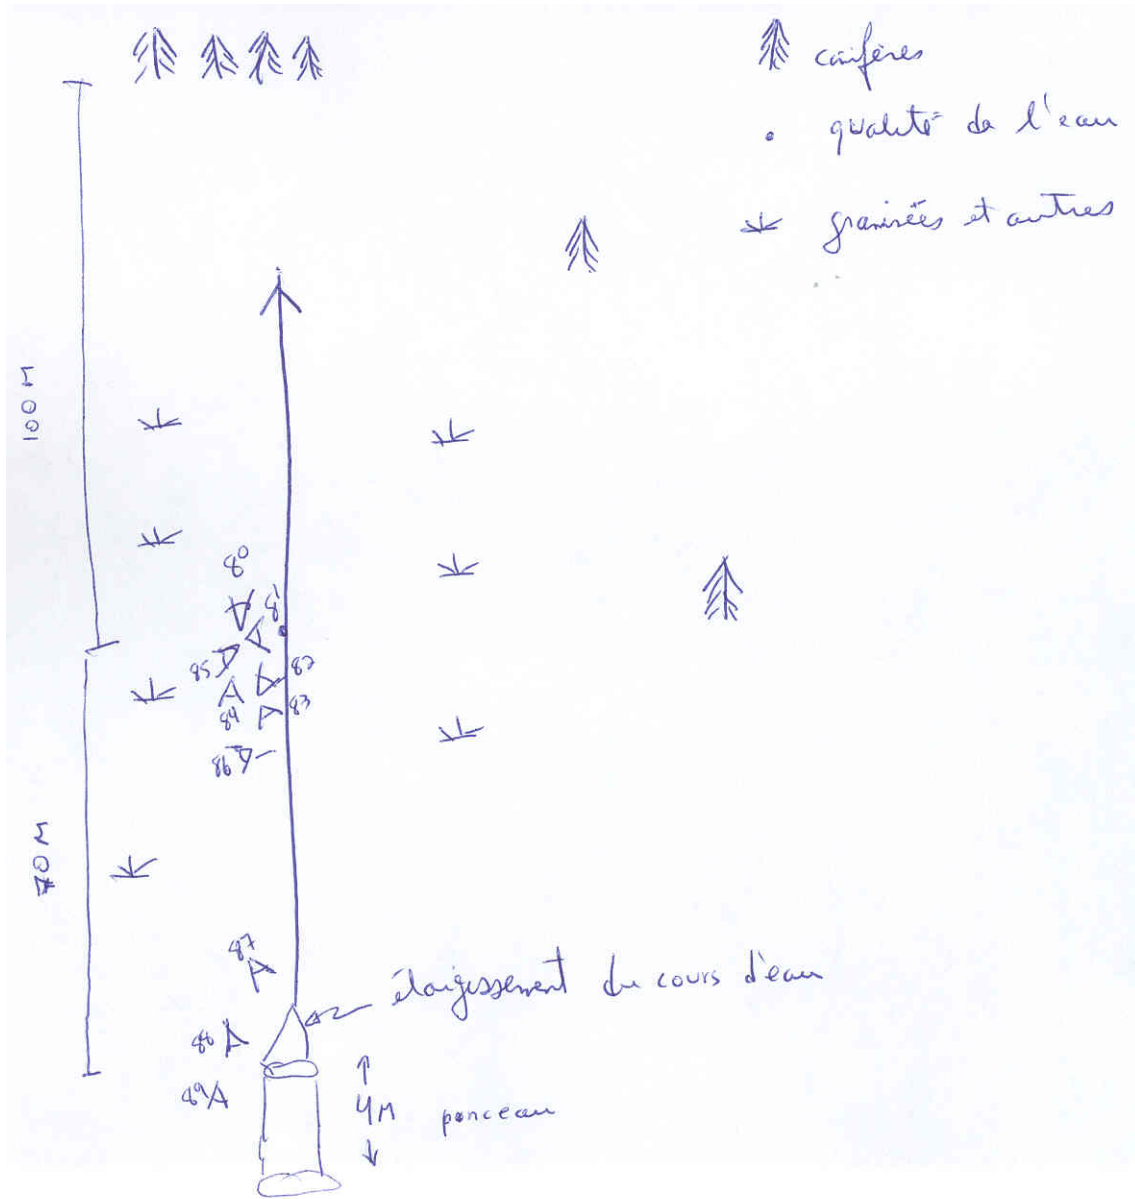 conifères
qualité de l'eau
graminées et autres
100 M
80
81
85
82
84
83
86
70 M
87
élargissement du cours d'eau
88
89
4M ponceau